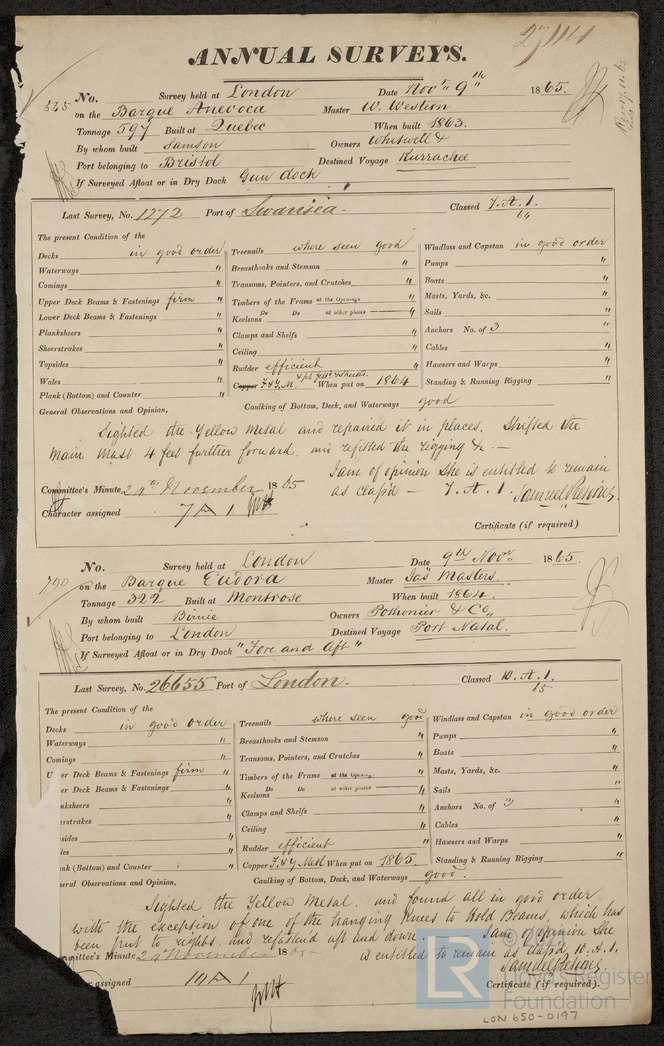 27114
ANNUAL SURVEYS.
525 No. Survey held at London Date Novr. 9th 1865.
on the Barque Anevoca Master W. Western
Tonnage 597 Built at Quebec When built 1863.
By whom built Samson Owners Whitwell &
Port belonging to Bristol Destined Voyage Kurrachee
If Surveyed Afloat or in Dry Dock Gun dock
Last Survey, No. 1272 Port of Swansea. Classed 7. A. 1.
The present Condition of the
Decks in good order Treenails where seen good Windlass and Capstan in good order
Waterways " Breasthooks and Stemson " Pumps "
Comings " Transoms, Pointers, and Crutches " Boats "
Upper Deck Beams & Fastenings firm " Timbers of the Frame at the Openings " Masts, Yards, &c. "
Lower Deck Beams & Fastenings " Keelsons Do Do at other places " Sails "
Planksheers " Clamps and Shelfs " Anchors No. of 3 "
Sheerstrakes " Ceiling " Cables "
Topsides " Rudder efficient " Hawsers and Warps "
Wales " Copper F & Y. M. When put on 1864 Standing & Running Rigging "
Plank (Bottom) and Counter " Caulking of Bottom, Deck, and Waterways good
General Observations and Opinion,
Sighted the Yellow Metal and repaired it in places. Shifted the
Main Mast 4 feet further forward, and refitted the rigging &c. —
I am of opinion she is entitled to remain
Committee's Minute 29th November 1865 as class'd — 7. A. 1. Samuel Pretious.
Character assigned 7 A 1
Certificate (if required)
790 No. Survey held at London Date 9th Novr 1865.
on the Barque Eudora Master Jas Masters
Tonnage 322 Built at Montrose When built 1864.
By whom built Birnie Owners Pothonier & Co.,
Port belonging to London Destined Voyage Port Natal.
If Surveyed Afloat or in Dry Dock "Fore and Aft"
Last Survey, No. 26655 Port of London. Classed 10. A. 1.
The present Condition of the 15
Decks in good order Treenails where seen good Windlass and Capstan in good order
Waterways " Breasthooks and Stemson " Pumps "
Comings " Transoms, Pointers, and Crutches " Boats "
er Deck Beams & Fastenings firm " Timbers of the Frame at the Openings " Masts, Yards, &c. "
er Deck Beams & Fastenings " Keelsons Do Do at other places " Sails "
nksheers " Clamps and Shelfs " Anchors No. of 3 "
erstrakes " Ceiling " Cables "
sides " Rudder efficient " Hawsers and Warps "
les " Copper F. & Y Metl When put on 1865. Standing & Running Rigging "
nk (Bottom) and Counter " Caulking of Bottom, Deck, and Waterways good.
eral Observations and Opinion,
Sighted the Yellow Metal, and found all in good order
with the exception of one of the hanging knees to Hold Beams, which has
been put to rights, and refastend aft and down. I am of opinion she
mmittee's Minute 29 November 1865 is entitled to remain as class'd 10. A. 1.
Samuel Pretious
er assigned 10 A 1 Certificate (if required).
LR
© 2021
Lloyd's Register
Foundation
LON 650-0197